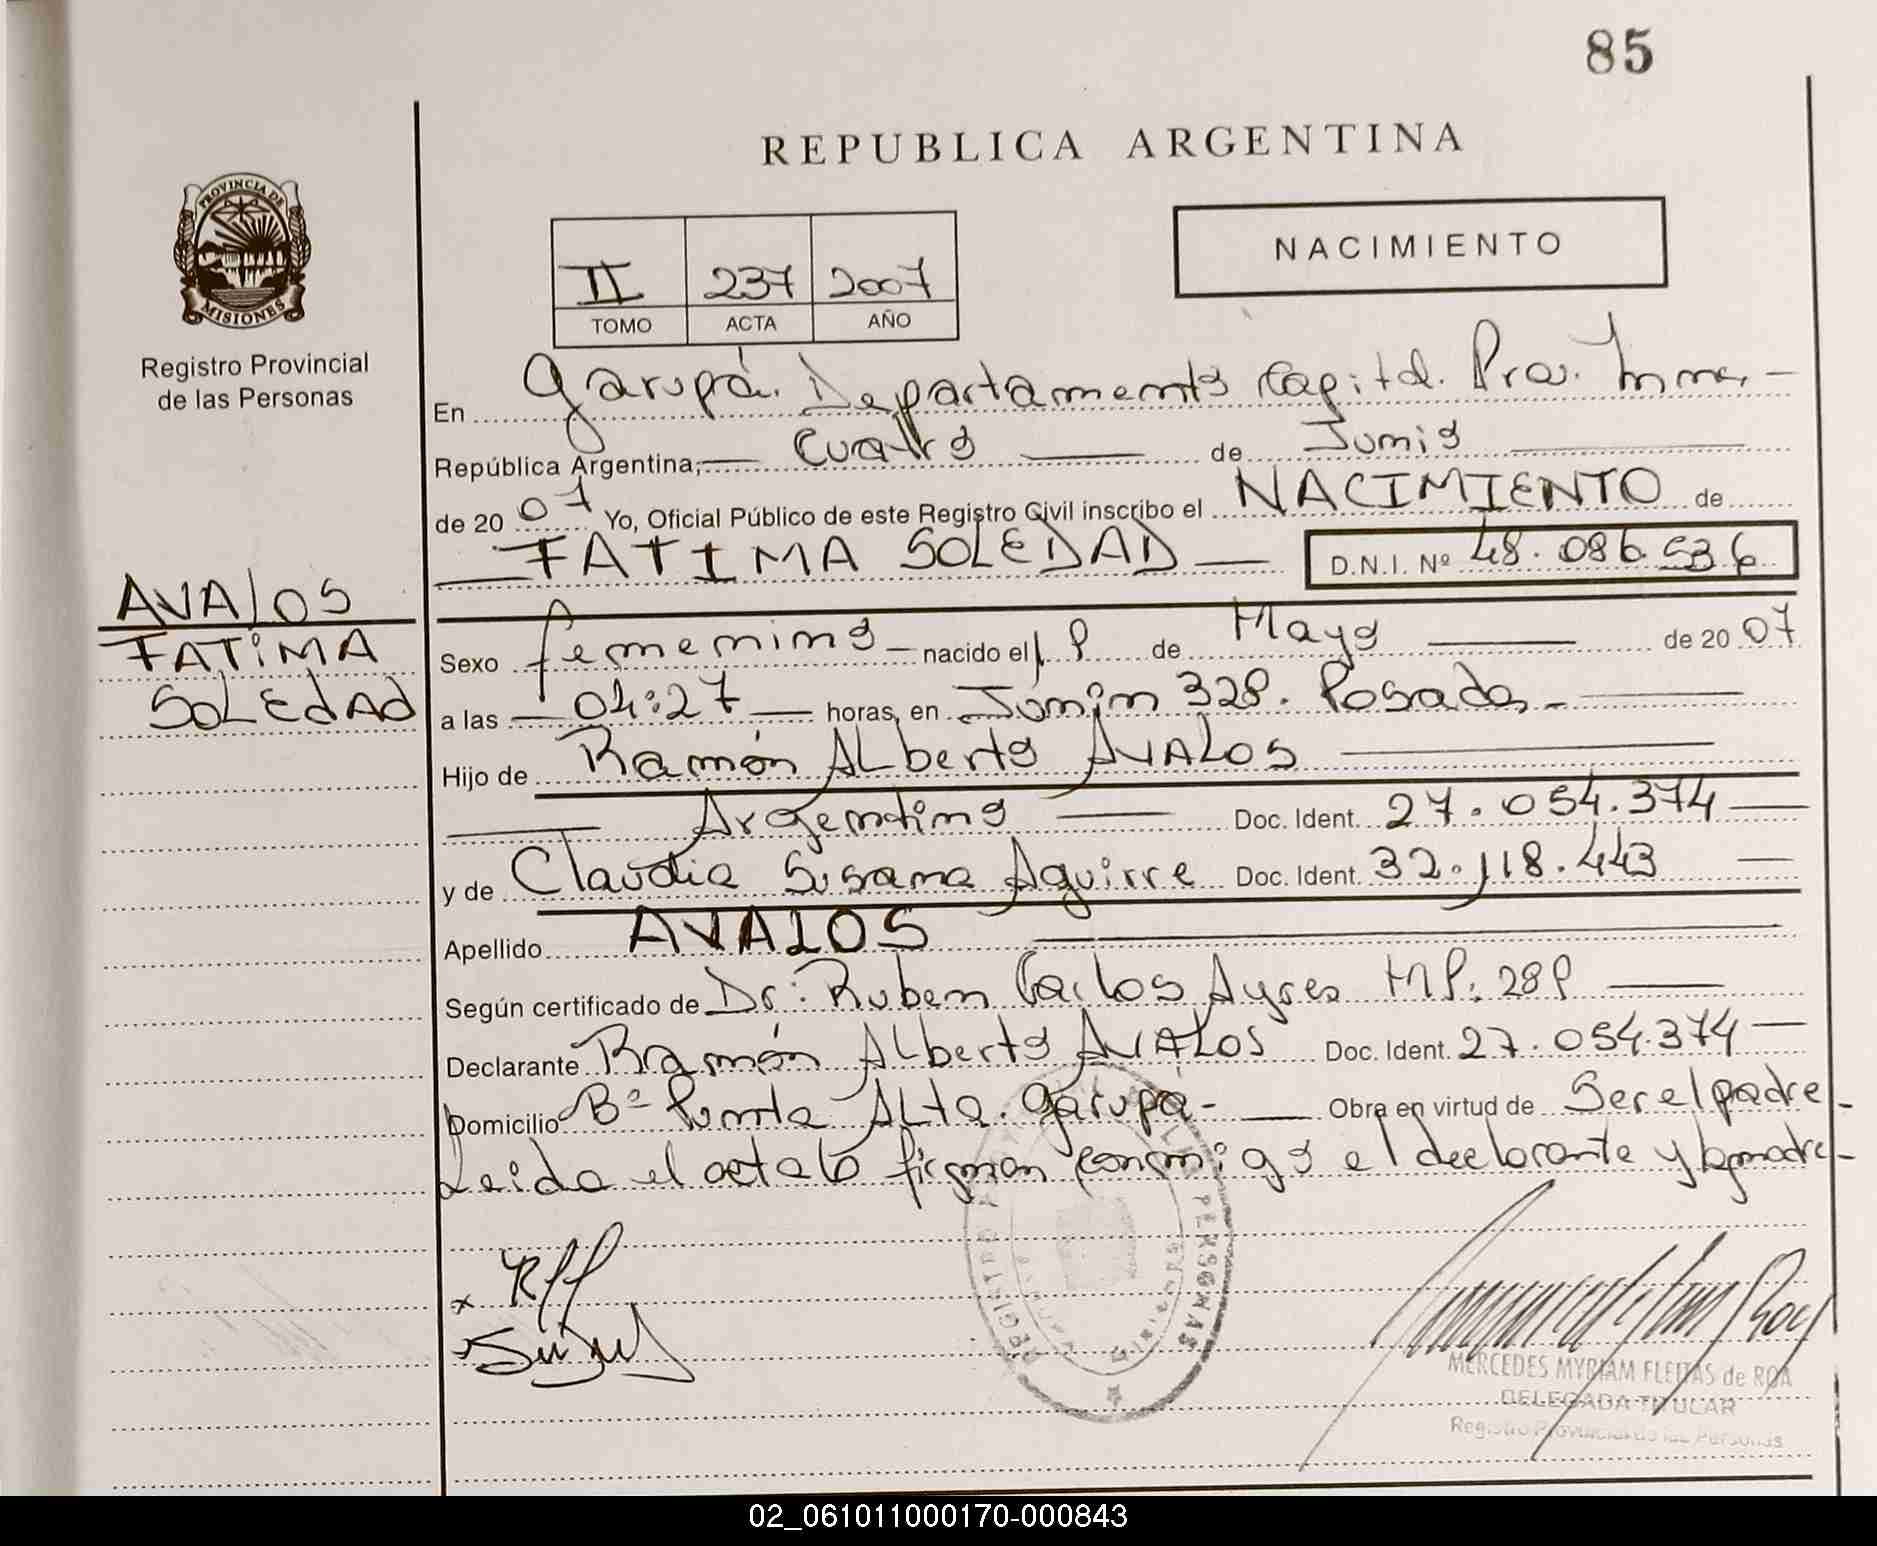 85
REPUBLICA ARGENTINA
PROVINCIA DE
MISIONES
Registro Provincial
de las Personas
NACIMIENTO
II 237 2007
TOMO ACTA AÑO
En Garupá. Departamento Capital. Prov. Mnes. -
República Argentina, Cuatro de Junio
de 2007 Yo, Oficial Público de este Registro Civil inscribo el NACIMIENTO de
FATIMA SOLEDAD D.N.I. Nº 48.086.536
AVALOS
FATIMA
SOLEDAD
Sexo femenino nacido el de Mayo de 2007
a las 04:27 horas, en Junín 328. Posadas -
Hijo de Ramón ALberto AVALOS
Argentino Doc. Ident. 27.054.374
y de Claudia Susana Aguirre Doc. Ident. 32.118.443
Apellido AVALOS
Según certificado de Dr. Ruben Carlos Ayres MP.
Declarante Ramón ALberto AVALOS Doc. Ident. 27.054.374
Domicilio Bº Punta ALta. Garupá - Obra en virtud de Ser el padre -
Leida el acta la firman conmigo el declarante y la madre -
REGISTRO PERSONAS
MERCEDES MYRIAM FLEITAS de ROA
DELEGADA TITULAR
Registro Provincial de las Personas
02_061011000170-000843